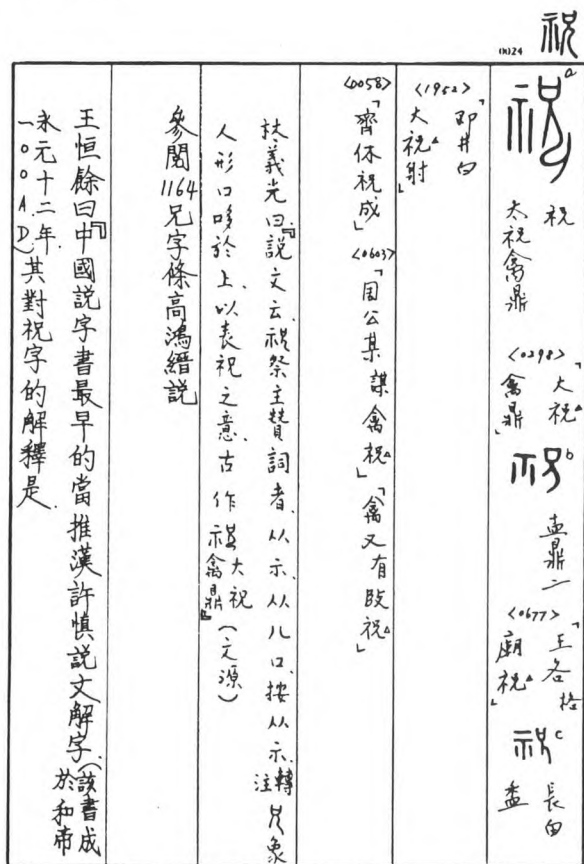 祝
0024
祝 太祝禽鼎 <0298>「大祝禽鼎」 b 盂鼎二 <0677>「王各格廟祝」 c 長甶盉
<1952>「即井白大祝射」
<0058>「齊休祝成」<0603>「周公某謀禽祝」「禽又有䟒祝」
林義光曰『說文云、祝祭主贊詞者、从示、从儿口、按从示、轉注 兄象
人形口哆於上、以表祝之意、古作 大祝禽鼎』(文源)
參閱1164兄字條高鴻縉說
王恒餘曰『中國說字書最早的當推漢許慎說文解字(該書成於和帝
永元十二年、一〇〇A.D)其對祝字的解釋是.